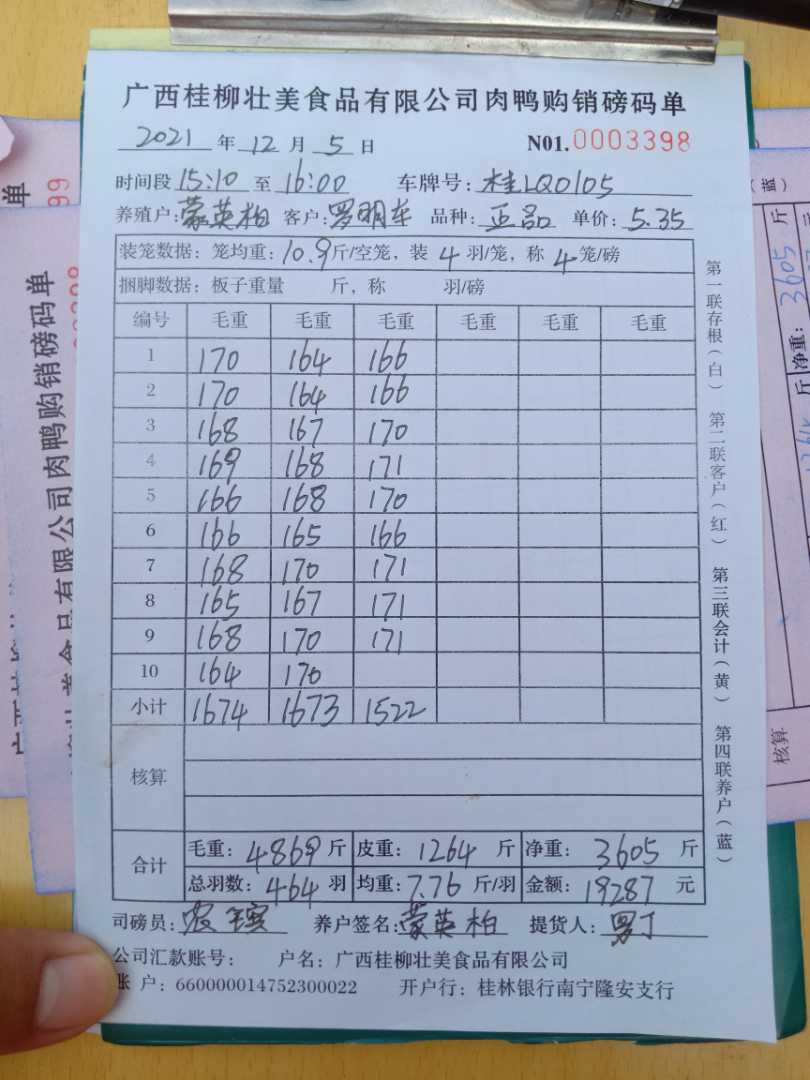 广西桂柳壮美食品有限公司肉鸭购销磅码单
2021 年 12 月 5 日 N01.0003398
时间段 15:10 至 16:00 车牌号: 桂LQ0105
养殖户: 蒙英柏 客户: 罗明车 品种: 正品 单价: 5.35
装笼数据: 笼均重: 10.9 斤/空笼, 装 4 羽/笼, 称 4 笼/磅
捆脚数据: 板子重量 斤, 称 羽/磅
编号 毛重 毛重 毛重 毛重 毛重 毛重
1 170 164 166
2 170 164 166
3 168 167 170
4 169 168 171
5 166 168 170
6 166 165 166
7 168 170 171
8 165 167 171
9 168 170 171
10 164 170
小计 1674 1673 1522
核算
合计 毛重: 4869 斤 皮重: 1264 斤 净重: 3605 斤
总羽数: 464 羽 均重: 7.76 斤/羽 金额: 19287 元
司磅员: 养户签名: 蒙英柏 提货人: 男丁
公司汇款账号: 户名: 广西桂柳壮美食品有限公司
账 户: 660000014752300022 开户行: 桂林银行南宁隆安支行
第一联存根(白) 第二联客户(红) 第三联会计(黄) 第四联养户(蓝)
公司肉鸭购销磅码单
单
99
(蓝)
斤
净重: 3605
斤
核算